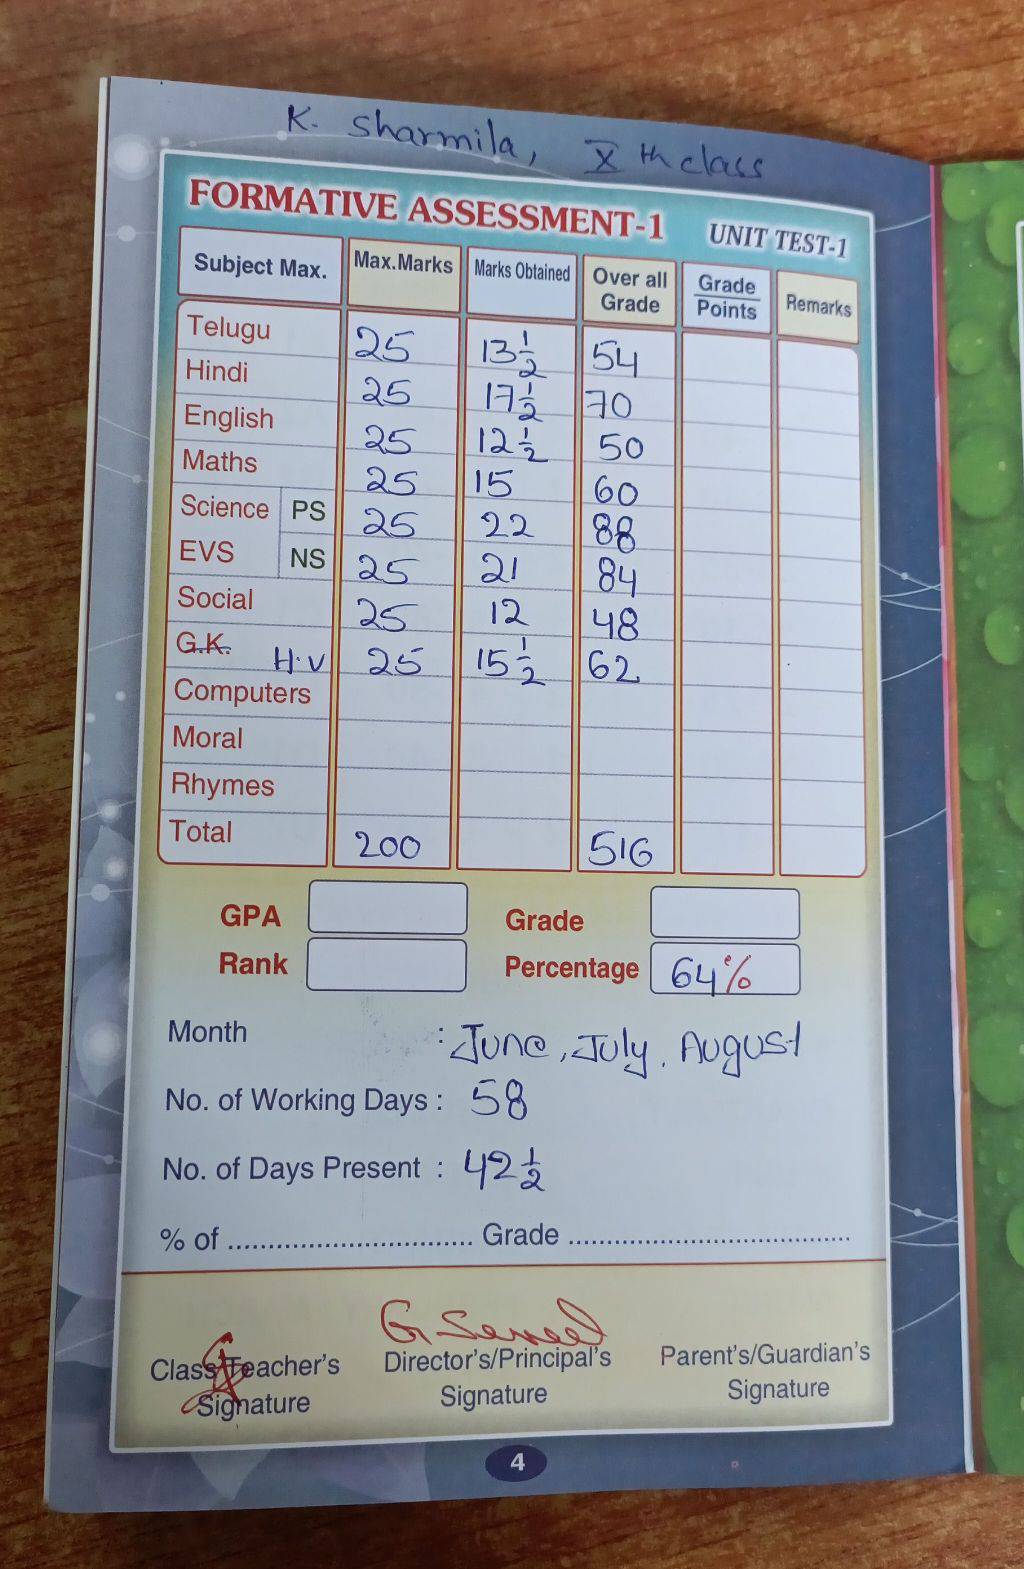 K. Sharmila, X th class
FORMATIVE ASSESSMENT-1 UNIT TEST-1
Subject Max. Max.Marks Marks Obtained Over all Grade Grade Points Remarks
Telugu 25 13 1/2 54
Hindi 25 17 1/2 70
English 25 12 1/2 50
Maths 25 15 60
Science PS 25 22 88
EVS NS 25 21 84
Social 25 12 48
G.K. H.V 25 15 1/2 62
Computers
Moral
Rhymes
Total 200 516
GPA Grade
Rank Percentage 64%
Month : June, July, August
No. of Working Days : 58
No. of Days Present : 42 1/2
% of .............................. Grade ....................................
Class Teacher's Signature
Director's/Principal's Signature
Parent's/Guardian's Signature
4